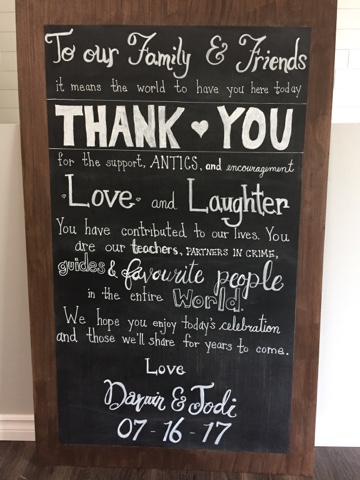 To our Family & Friends
it means the world to have you here today
THANK ♥ YOU
for the support, ANTICS, and encouragement
Love and Laughter
You have contributed to our lives. You
are our teachers, PARTNERS IN CRIME,
guides & favourite people
in the entire World.
We hope you enjoy today's celebration
and those we'll share for years to come.
Love
Darwin & Jodi
07-16-17